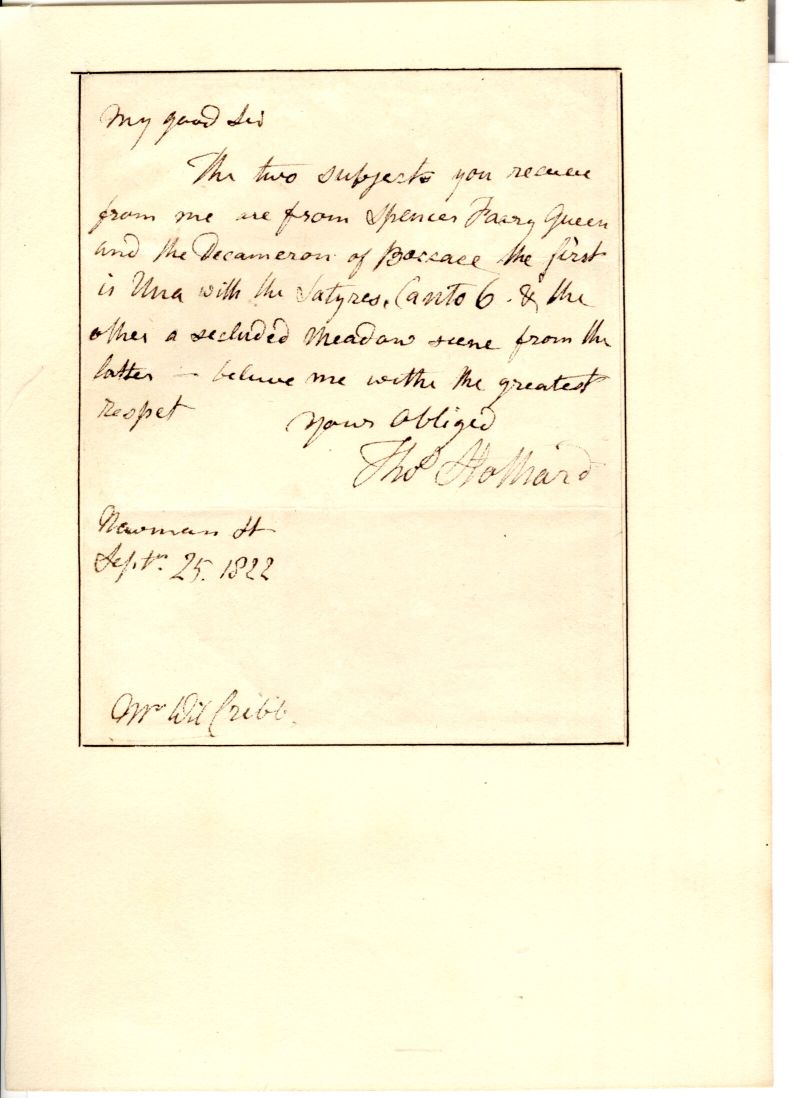 My good Sir
The two subjects you receive
from me are from Spencers Fairy Queen
and the Decameron of Boccace, the first
is Una with the Satyres, Canto 6. & the
other a secluded Meadow scene from the
latter — believe me withe the greatest
respet Yours obliged
Thos Stothard
Newman St
Septr. 25. 1822
Mr Wil Cribb.